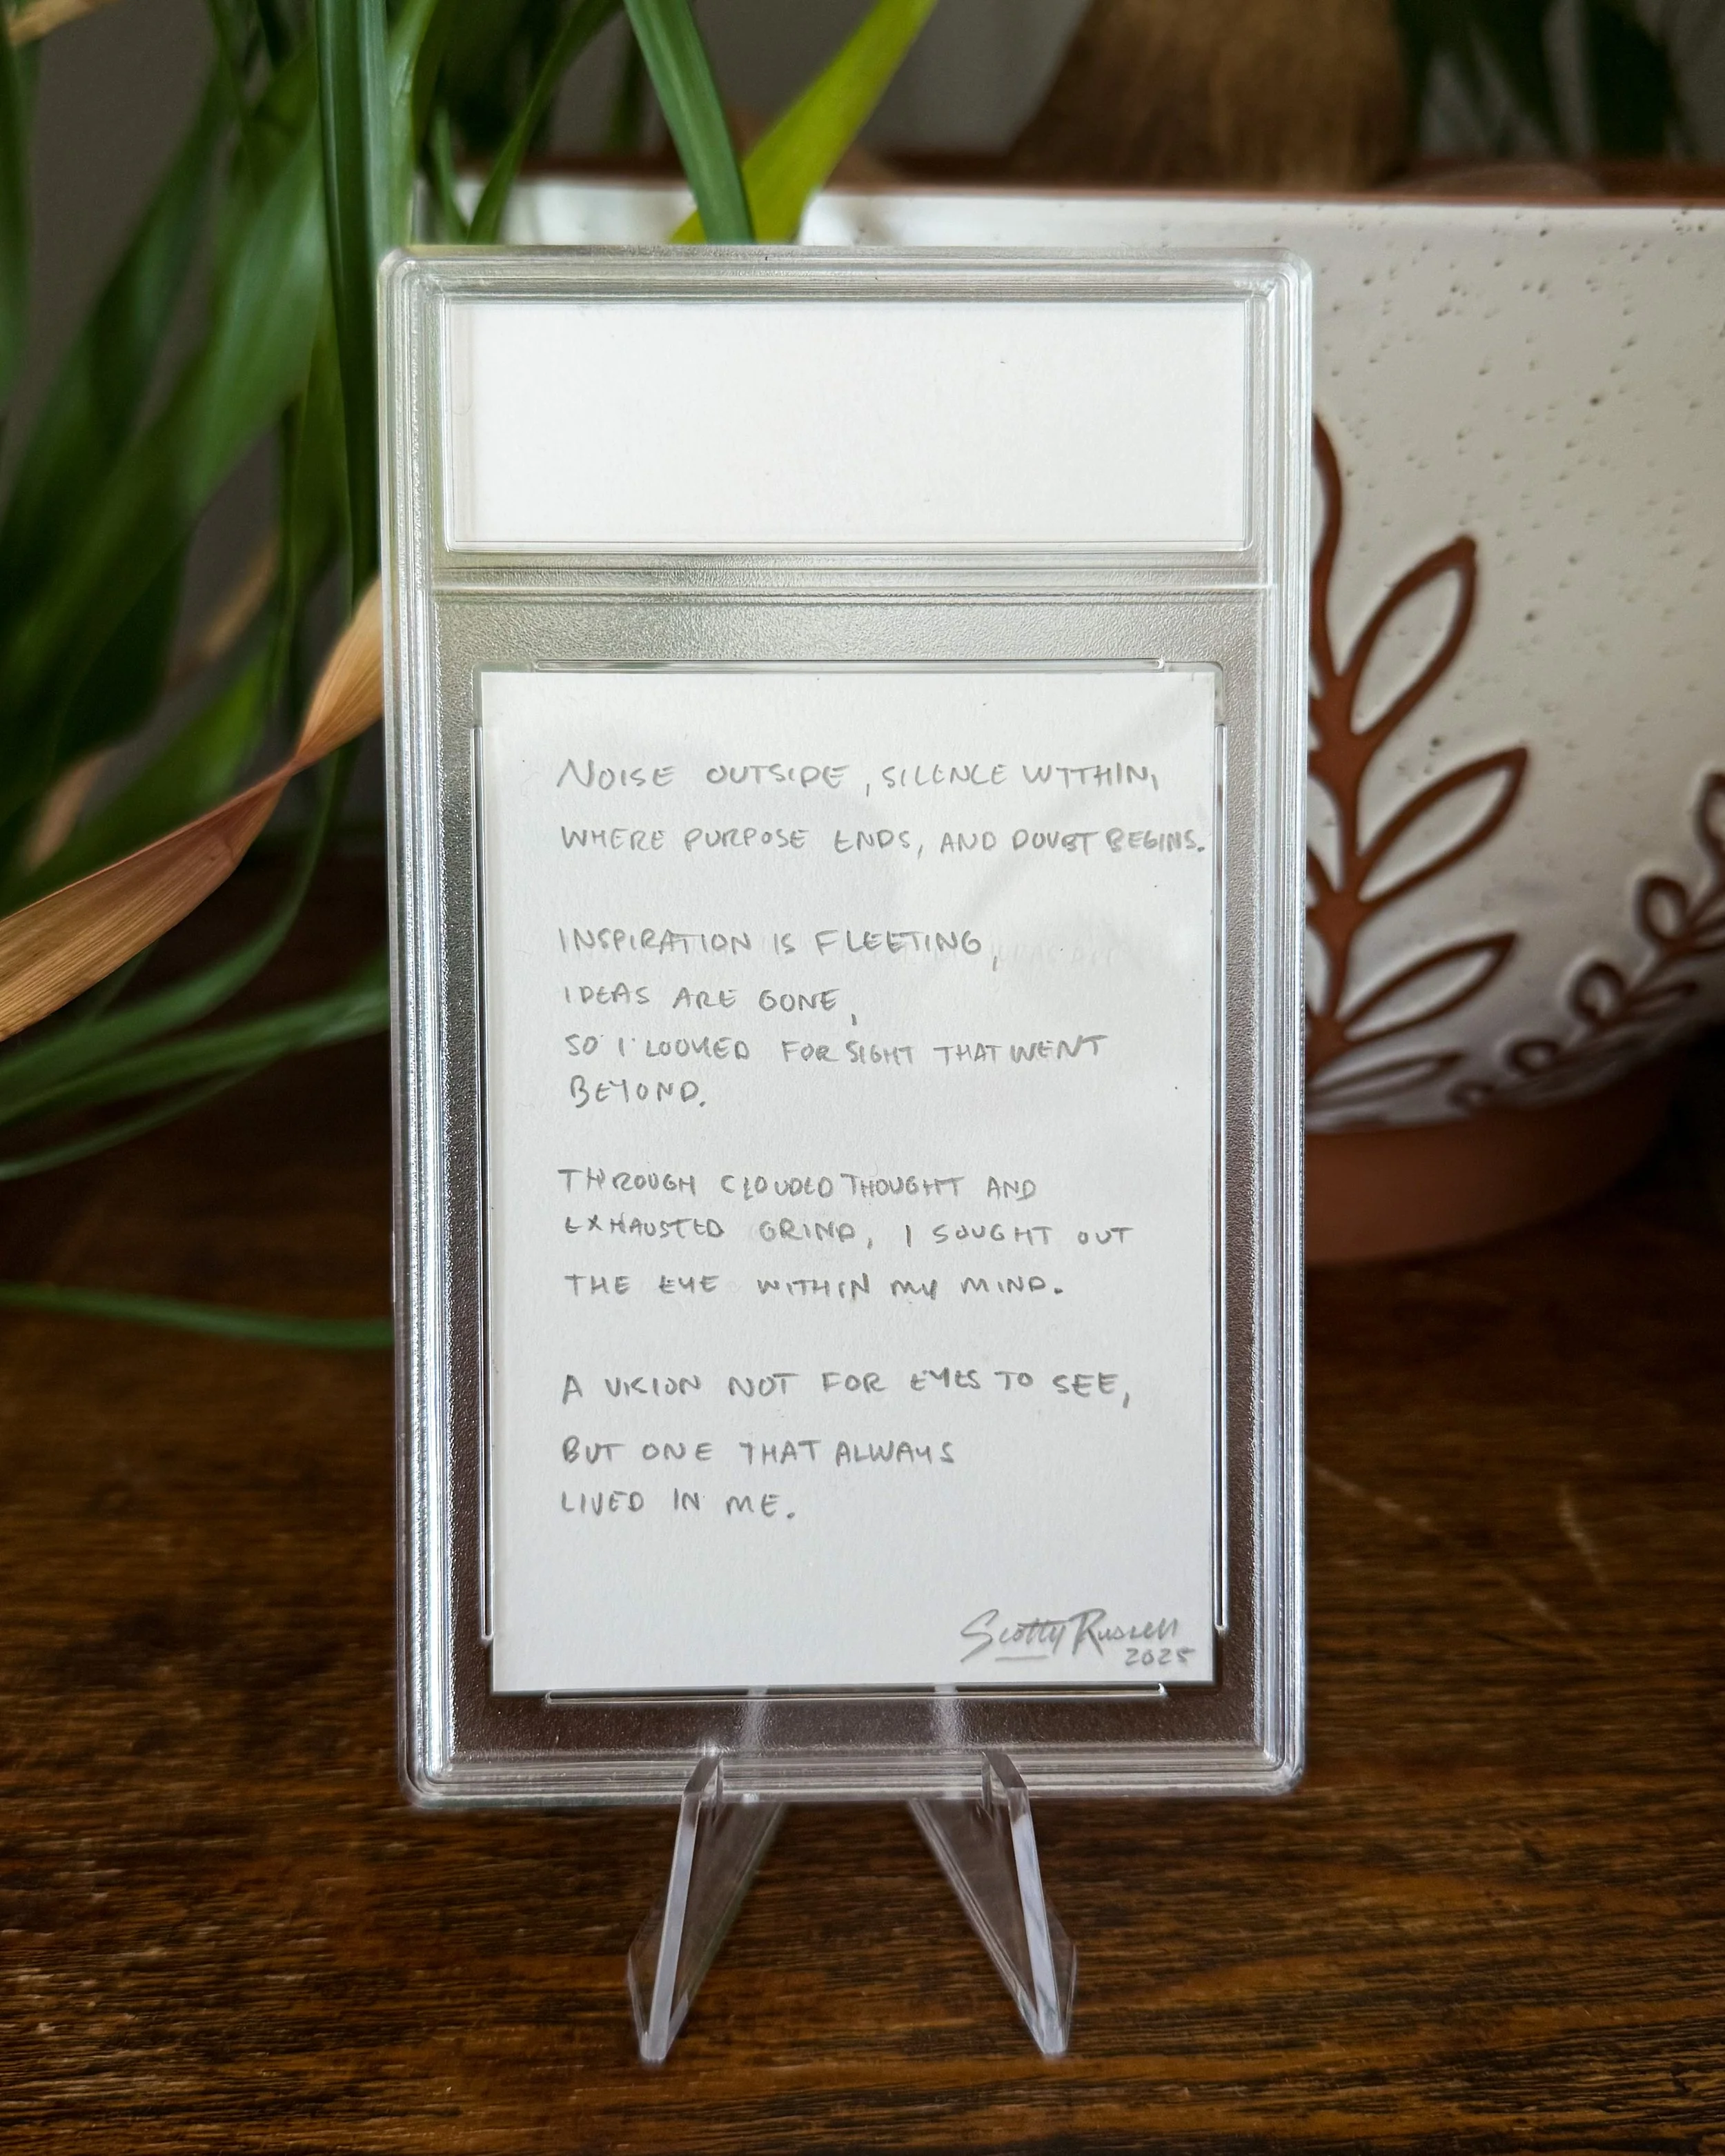 NOISE OUTSIDE, SILENCE WITHIN,
WHERE PURPOSE ENDS, AND DOUBT BEGINS.
INSPIRATION IS FLEETING,
IDEAS ARE GONE,
SO I LOOKED FOR SIGHT THAT WENT
BEYOND.
THROUGH CLOUDED THOUGHT AND
EXHAUSTED GRIND, I SOUGHT OUT
THE EYE WITHIN MY MIND.
A VISION NOT FOR EYES TO SEE,
BUT ONE THAT ALWAYS
LIVED IN ME.
Scotty Russell
2025